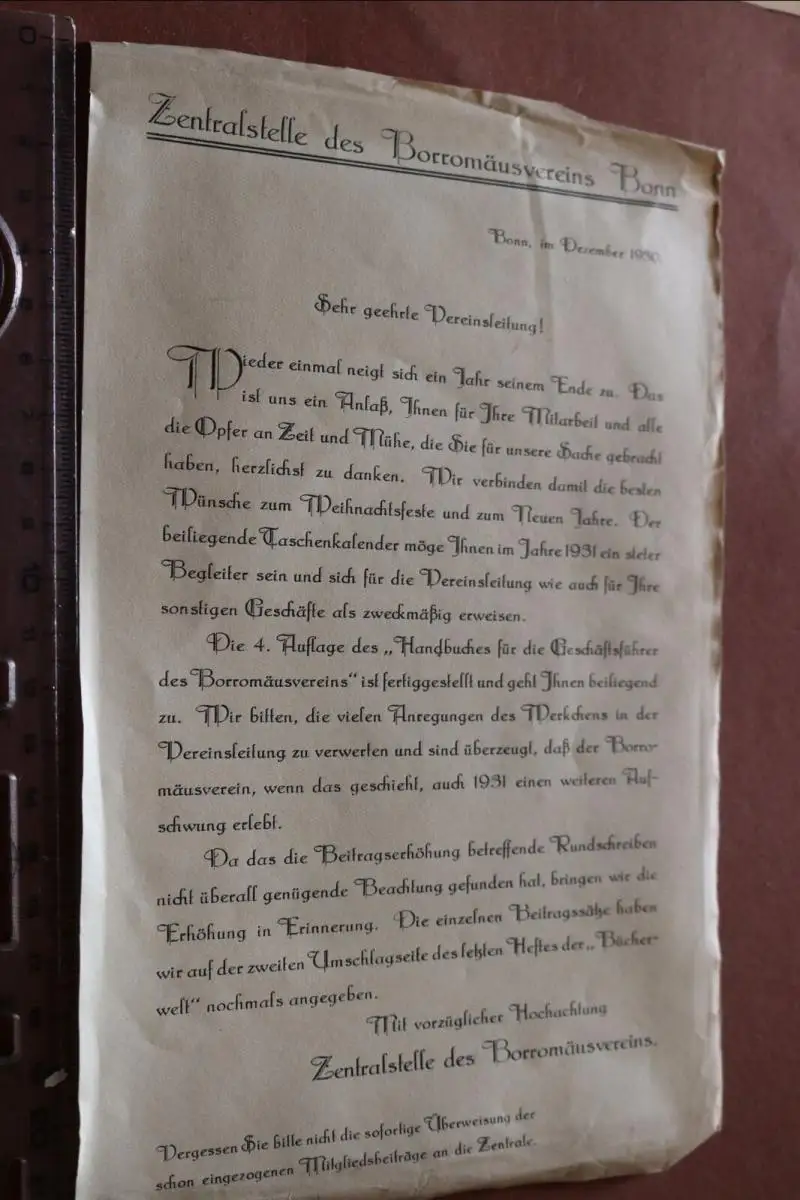 Zentralstelle des Borromäusvereins Bonn
Bonn, im Dezember 1930.
Sehr geehrte Vereinsleitung!
Wieder einmal neigt sich ein Jahr seinem Ende zu. Das
ist uns ein Anlaß, Ihnen für Ihre Mitarbeit und alle
die Opfer an Zeit und Mühe, die Sie für unsere Sache gebracht
haben, herzlichst zu danken. Wir verbinden damit die besten
Wünsche zum Weihnachtsfeste und zum Neuen Jahre. Der
beiliegende Taschenkalender möge Ihnen im Jahre 1931 ein steter
Begleiter sein und sich für die Vereinsleitung wie auch für Ihre
sonstigen Geschäfte als zweckmäßig erweisen.
Die 4. Auflage des „Handbuches für die Geschäftsführer
des Borromäusvereins“ ist fertiggestellt und geht Ihnen beiliegend
zu. Wir bitten, die vielen Anregungen des Werkchens in der
Vereinsleitung zu verwerten und sind überzeugt, daß der Borro-
mäusverein, wenn das geschieht, auch 1931 einen weiteren Auf-
schwung erlebt.
Da das die Beitragserhöhung betreffende Rundschreiben
nicht überall genügende Beachtung gefunden hat, bringen wir die
Erhöhung in Erinnerung. Die einzelnen Beitragssätze haben
wir auf der zweiten Umschlagseite des letzten Heftes der „Bücher-
welt“ nochmals angegeben.
Mit vorzüglicher Hochachtung
Zentralstelle des Borromäusvereins.
Vergessen Sie bitte nicht die sofortige Überweisung der
schon eingezogenen Mitgliedsbeiträge an die Zentrale.
0
10